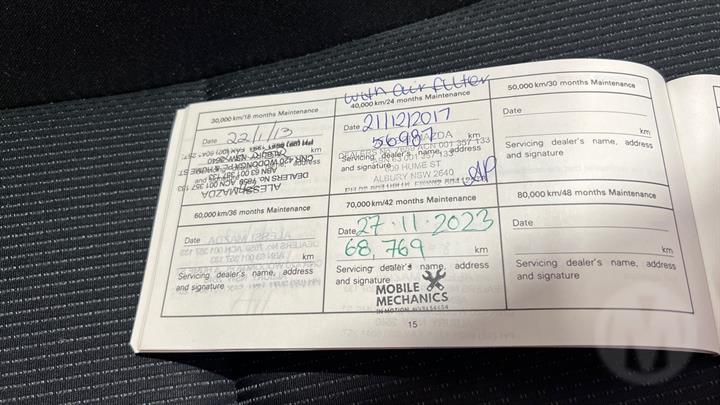 with air filter
30,000 km/18 months Maintenance
Date 22/1/13
km
CNR 420 WOODONGA PL & HUME ST
DEALERS No. 7659 ACN 001 357 133
ALESSI MAZDA
40,000 km/24 months Maintenance
Date 21/12/2017
56987 km
Servicing dealer's name, address
and signature
609 HUME ST
ALBURY NSW 2640
50,000 km/30 months Maintenance
Date
km
Servicing dealer's name, address
and signature
60,000 km/36 months Maintenance
Date
km
Servicing dealer's name, address
and signature
70,000 km/42 months Maintenance
Date 27.11.2023
68,769 km
Servicing dealer's name, address
and signature
MOBILE
MECHANICS
80,000 km/48 months Maintenance
Date
km
Servicing dealer's name, address
and signature
15